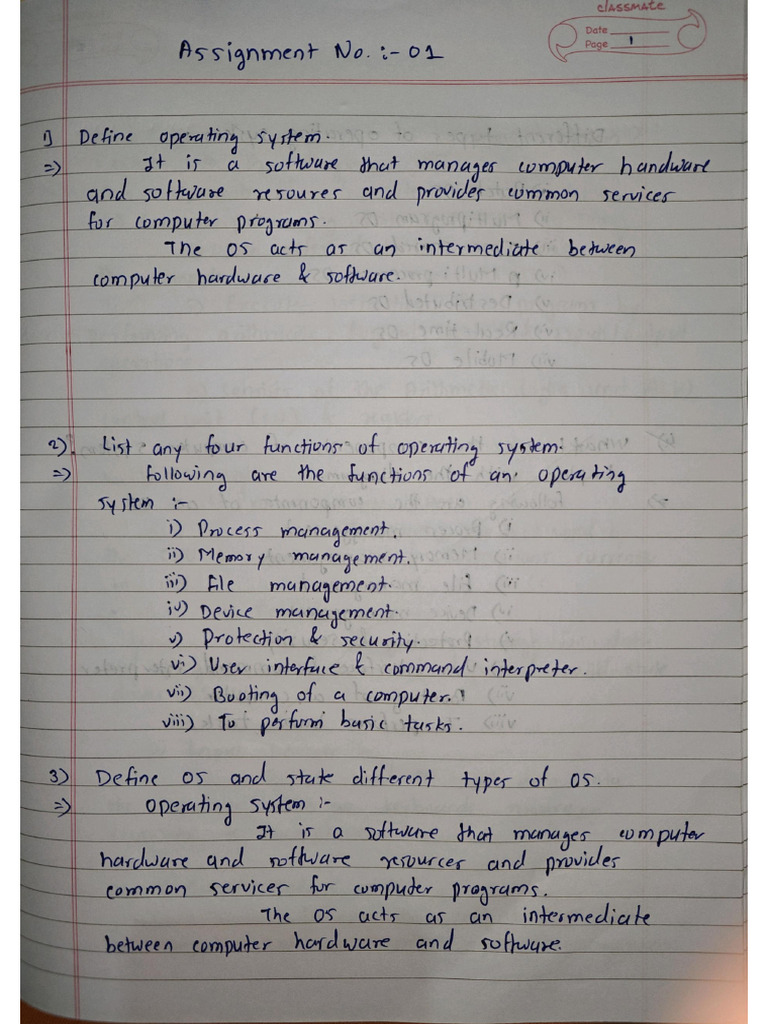 classmate
Date
Page 1
Assignment No. :- 01
1) Define operating system.
=> It is a software that manages computer handware
and software resoures and provides common services
for computer programs.
The OS acts as an intermediate between
computer hardware & software.
2) List any four functions of operating system.
=> Following are the functions of an operating
system :-
i) Process management.
ii) Memory management.
iii) File management.
iv) Device management.
v) Protection & security.
vi) User interface & command interpreter.
vii) Booting of a computer.
viii) To perform basic tasks.
3) Define OS and state different types of OS.
=> Operating system :-
It is a software that manages computer
hardware and software resources and provides
common services for computer programs.
The OS acts as an intermediate
between computer hardware and software.